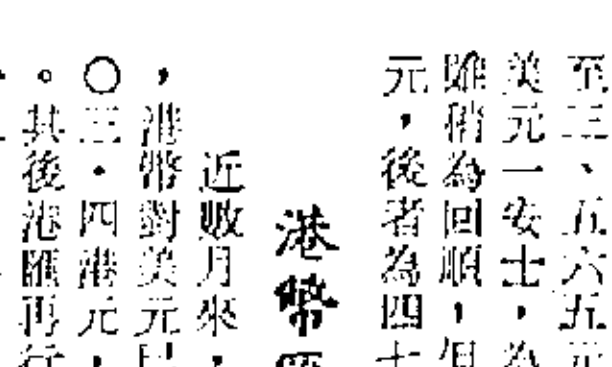 至三、五六五元
美元一安士，為
雖稍為回順，但
元，後者為四七
港幣匯
近數月來，
，港幣對美元已
〇三・四港元，
。其後港匯再行